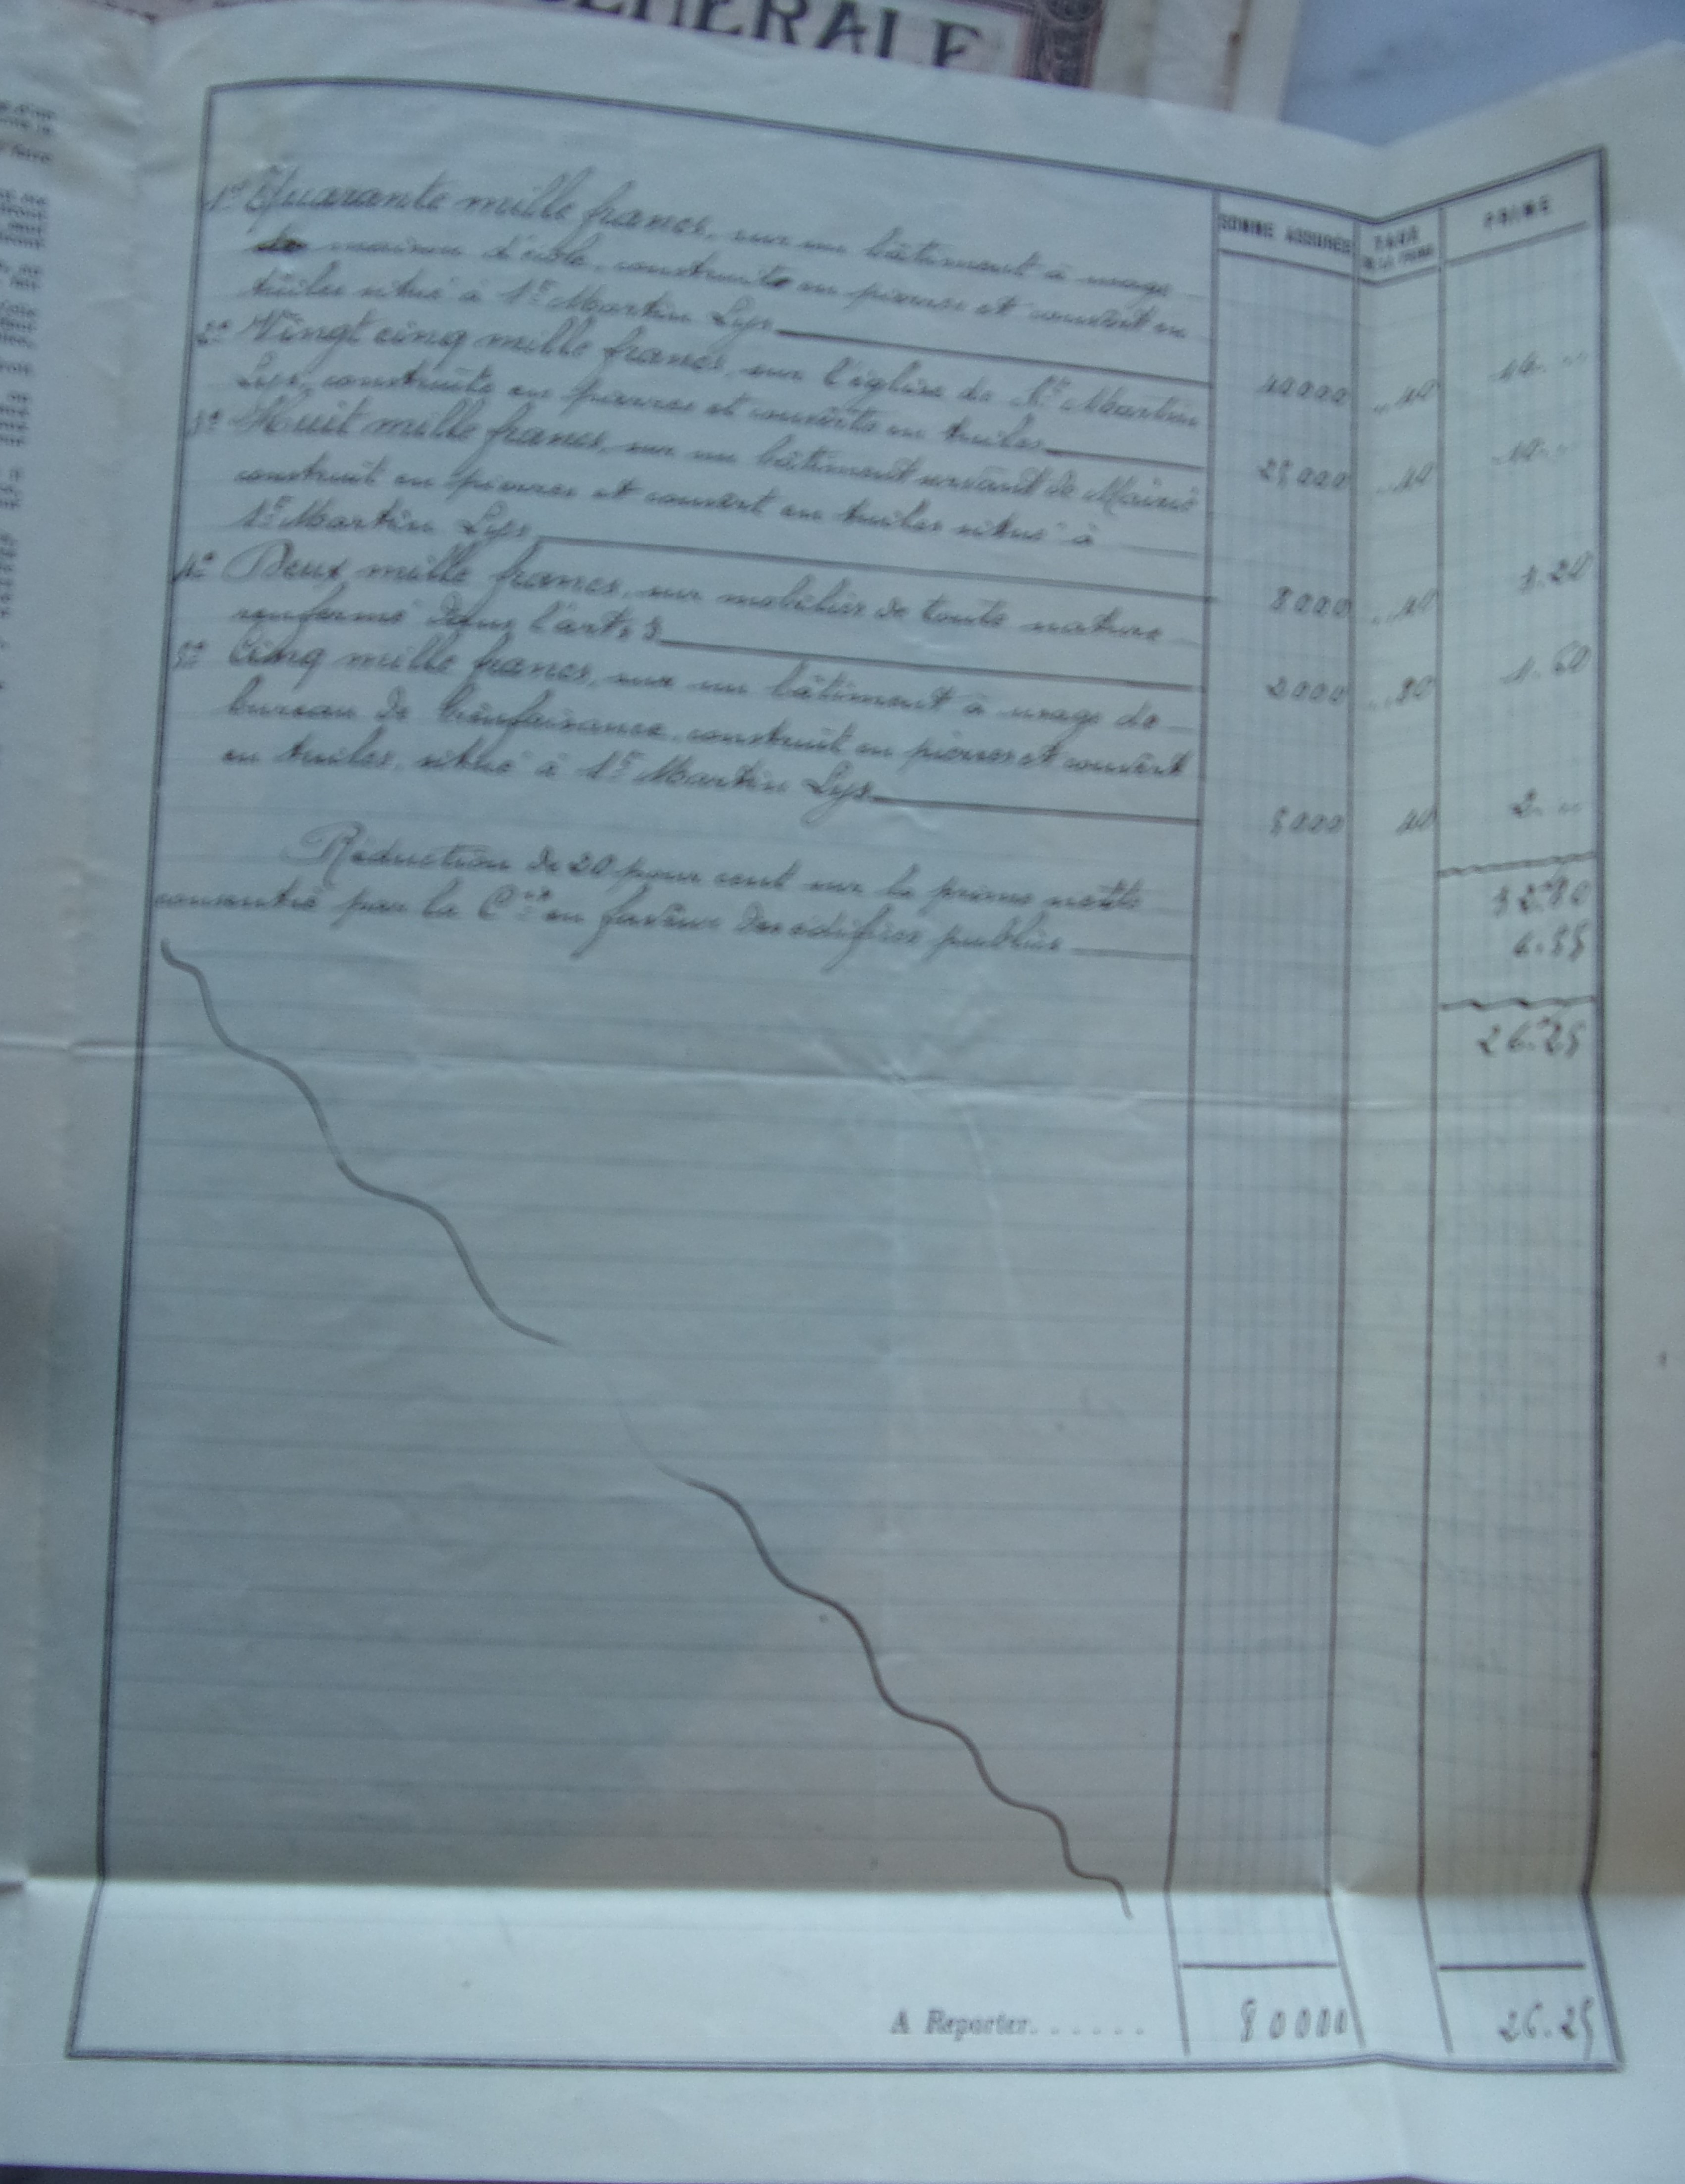 GÉNÉRALE
SOMME ASSURÉE
TAXE
PRIME
1° Quarante mille francs, sur un bâtiment à usage
de maison d'école, construite en pierres et couvert en
tuiles situé à St Martin Lys
40000 40 16
2° Vingt cinq mille francs, sur l'église de St Martin
Lys, construite en pierres et couverte en tuiles
25,000 40 10
3° Huit mille francs, sur un bâtiment servant de Mairie
construit en pierres et couvert en tuiles situé à
St Martin Lys
8000 40 3.20
4° Deux mille francs, sur mobilier de toute nature
renfermé dans l'art. 3
2000 80 1.60
5° Cinq mille francs, sur un bâtiment à usage de
bureau de bienfaisance, construit en pierres et couvert
en tuiles, situé à St Martin Lys
5000 40 2
32.80
Réduction de 20 pour cent sur la prime nette
consentie par la Cie en faveur des édifices publics
6.55
26.25
A Reporter. . . . . . 80000 26.25